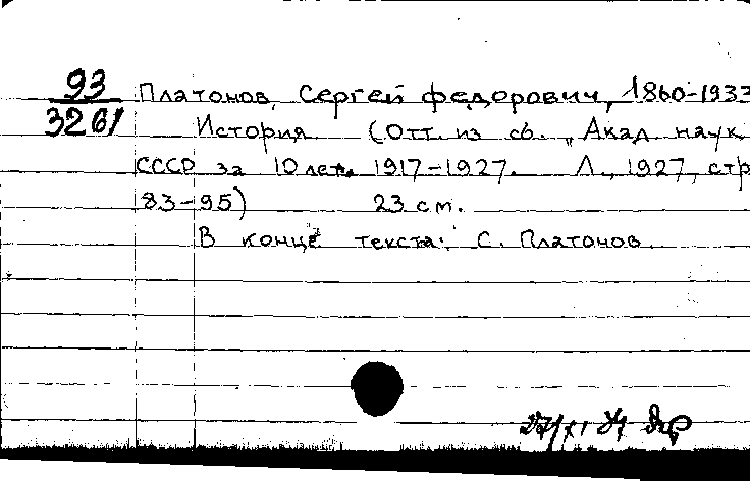 93 Платонов, Сергей Федорович, 1860-1933
3261 История (Отт. из сб. "Акад. наук
СССР за 10 лет. 1917-1927. Л., 1927, стр
83-95) 23 см.
В конце текста: С. Платонов